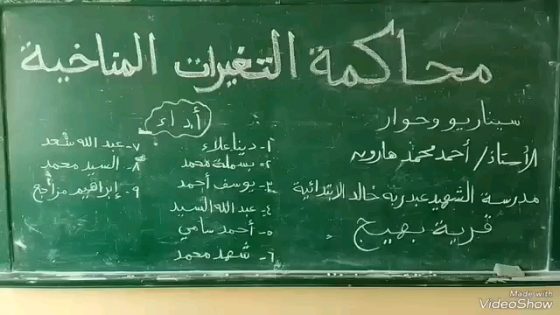 محاكمة التغيرات المناخية
سيناريو وحوار
الأستاذ/ أحمد محمد هارون
مدرسة الشهيد عبدربه خالد الابتدائية
قرية بهيج
أداء
١- دينا علاء
٢- بسملة محمد
٣- يوسف أحمد
٤- عبد الله السيد
٥- أحمد سامي
٦- شهد محمد
٧- عبد الله سعد
٨- السيد محمد
٩- إبراهيم مراجع
Made with
VideoShow